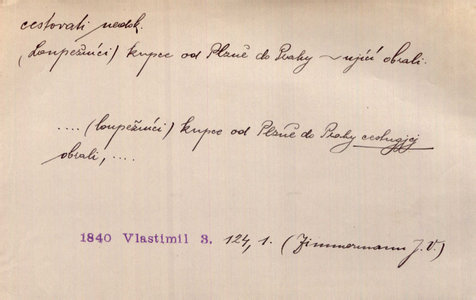 cestovati nedok.
(Loupežníci) kupce od Plzně do Prahy ~ující obrali.
.... (loupežníci) kupce od Plzně do Prahy cestugjcj
obrali, ....
1840 Vlastimil 3. 124, 1. (Zimmermann J. V.)